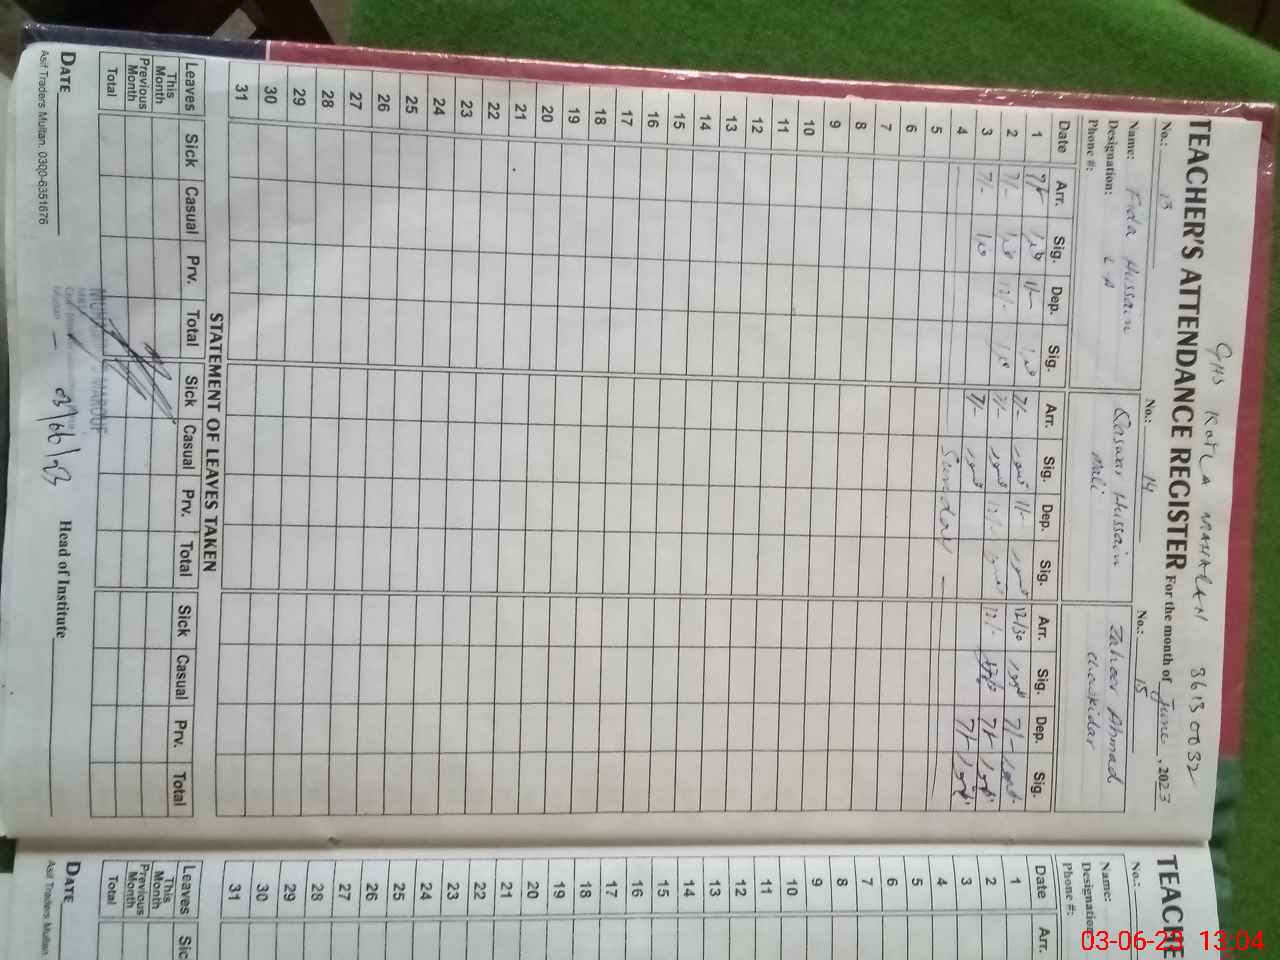 GHS KOTLA MAHARAN 36130032
TEACHER'S ATTENDANCE REGISTER For the month of June, 2023
No.: 13 No.: 14 No.: 15
Name: Fida Hussain Qaswar Hussain Zaheer Ahmad
Designation: L A Mali Chowkidar
Phone #:
Date Arr. Sig. Dep. Sig. Arr. Sig. Dep. Sig. Arr. Sig. Dep. Sig.
1 7/- 11/- 7/- 11/- 12/30 7/-
2 7/- 12/- 7/- 12/- 12/- 7/-
3 7/- 7/- 7/-
4 Sunday
5
6
7
8
9
10
11
12
13
14
15
16
17
18
19
20
21
22
23
24
25
26
27
28
29
30
31
STATEMENT OF LEAVES TAKEN
Leaves Sick Casual Prv. Total Sick Casual Prv. Total Sick Casual Prv. Total
This Month
Previous Month
Total
DATE 03/06/23 Head of Institute
Asif Traders Multan. 0300-6351676
TEACHE
No.:
Name:
Designation
Phone #:
Date Arr.
1
2
3
4
5
6
7
8
9
10
11
12
13
14
15
16
17
18
19
20
21
22
23
24
25
26
27
28
29
30
31
Leaves Sic
This Month
Previous Month
Total
DATE
Asif Traders Multan
03-06-23 13:04